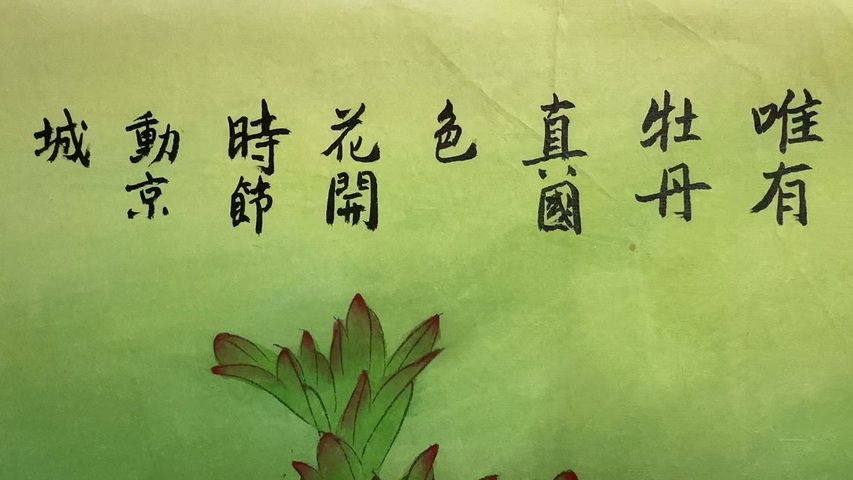 唯有
牡丹
真國
色
花開
時節
動京
城